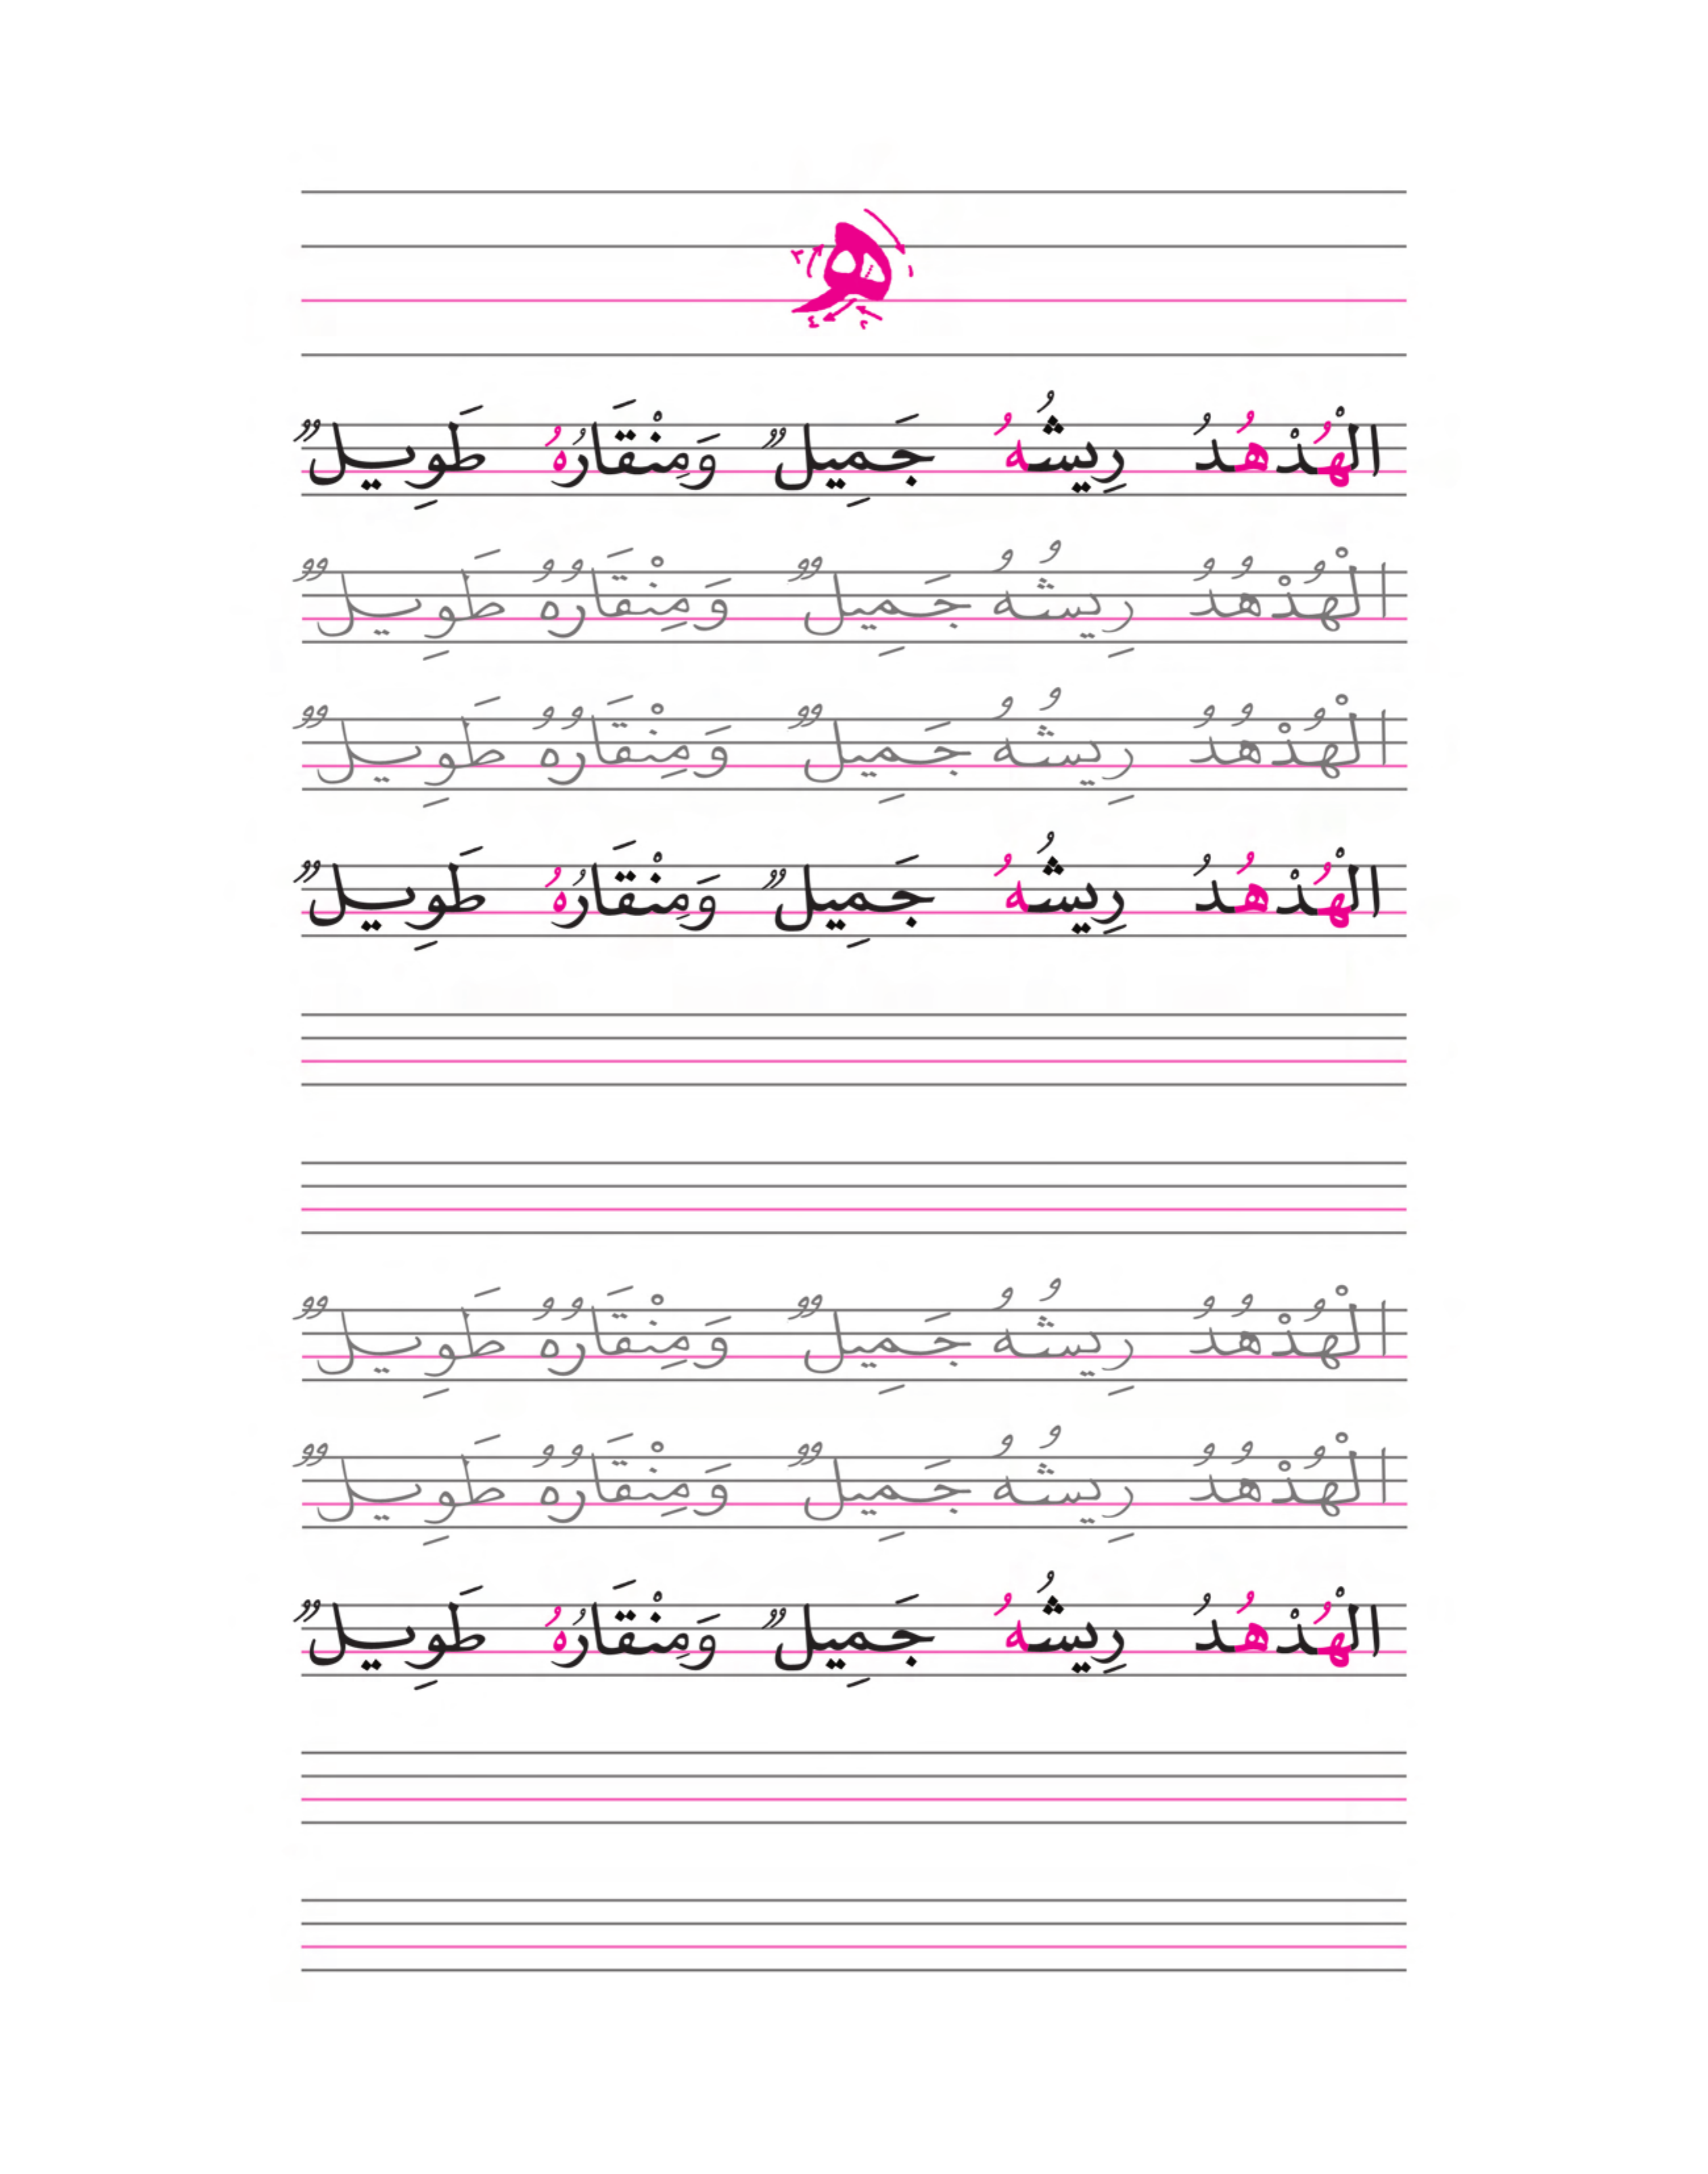 هـ ١ ٢ ٣ ٤
الْهُدْهُدُ رِيشُهُ جَمِيلٌ وَمِنْقَارُهُ طَوِيلٌ
الْهُدْهُدُ رِيشُهُ جَمِيلٌ وَمِنْقَارُهُ طَوِيلٌ
الْهُدْهُدُ رِيشُهُ جَمِيلٌ وَمِنْقَارُهُ طَوِيلٌ
الْهُدْهُدُ رِيشُهُ جَمِيلٌ وَمِنْقَارُهُ طَوِيلٌ
الْهُدْهُدُ رِيشُهُ جَمِيلٌ وَمِنْقَارُهُ طَوِيلٌ
الْهُدْهُدُ رِيشُهُ جَمِيلٌ وَمِنْقَارُهُ طَوِيلٌ
الْهُدْهُدُ رِيشُهُ جَمِيلٌ وَمِنْقَارُهُ طَوِيلٌ